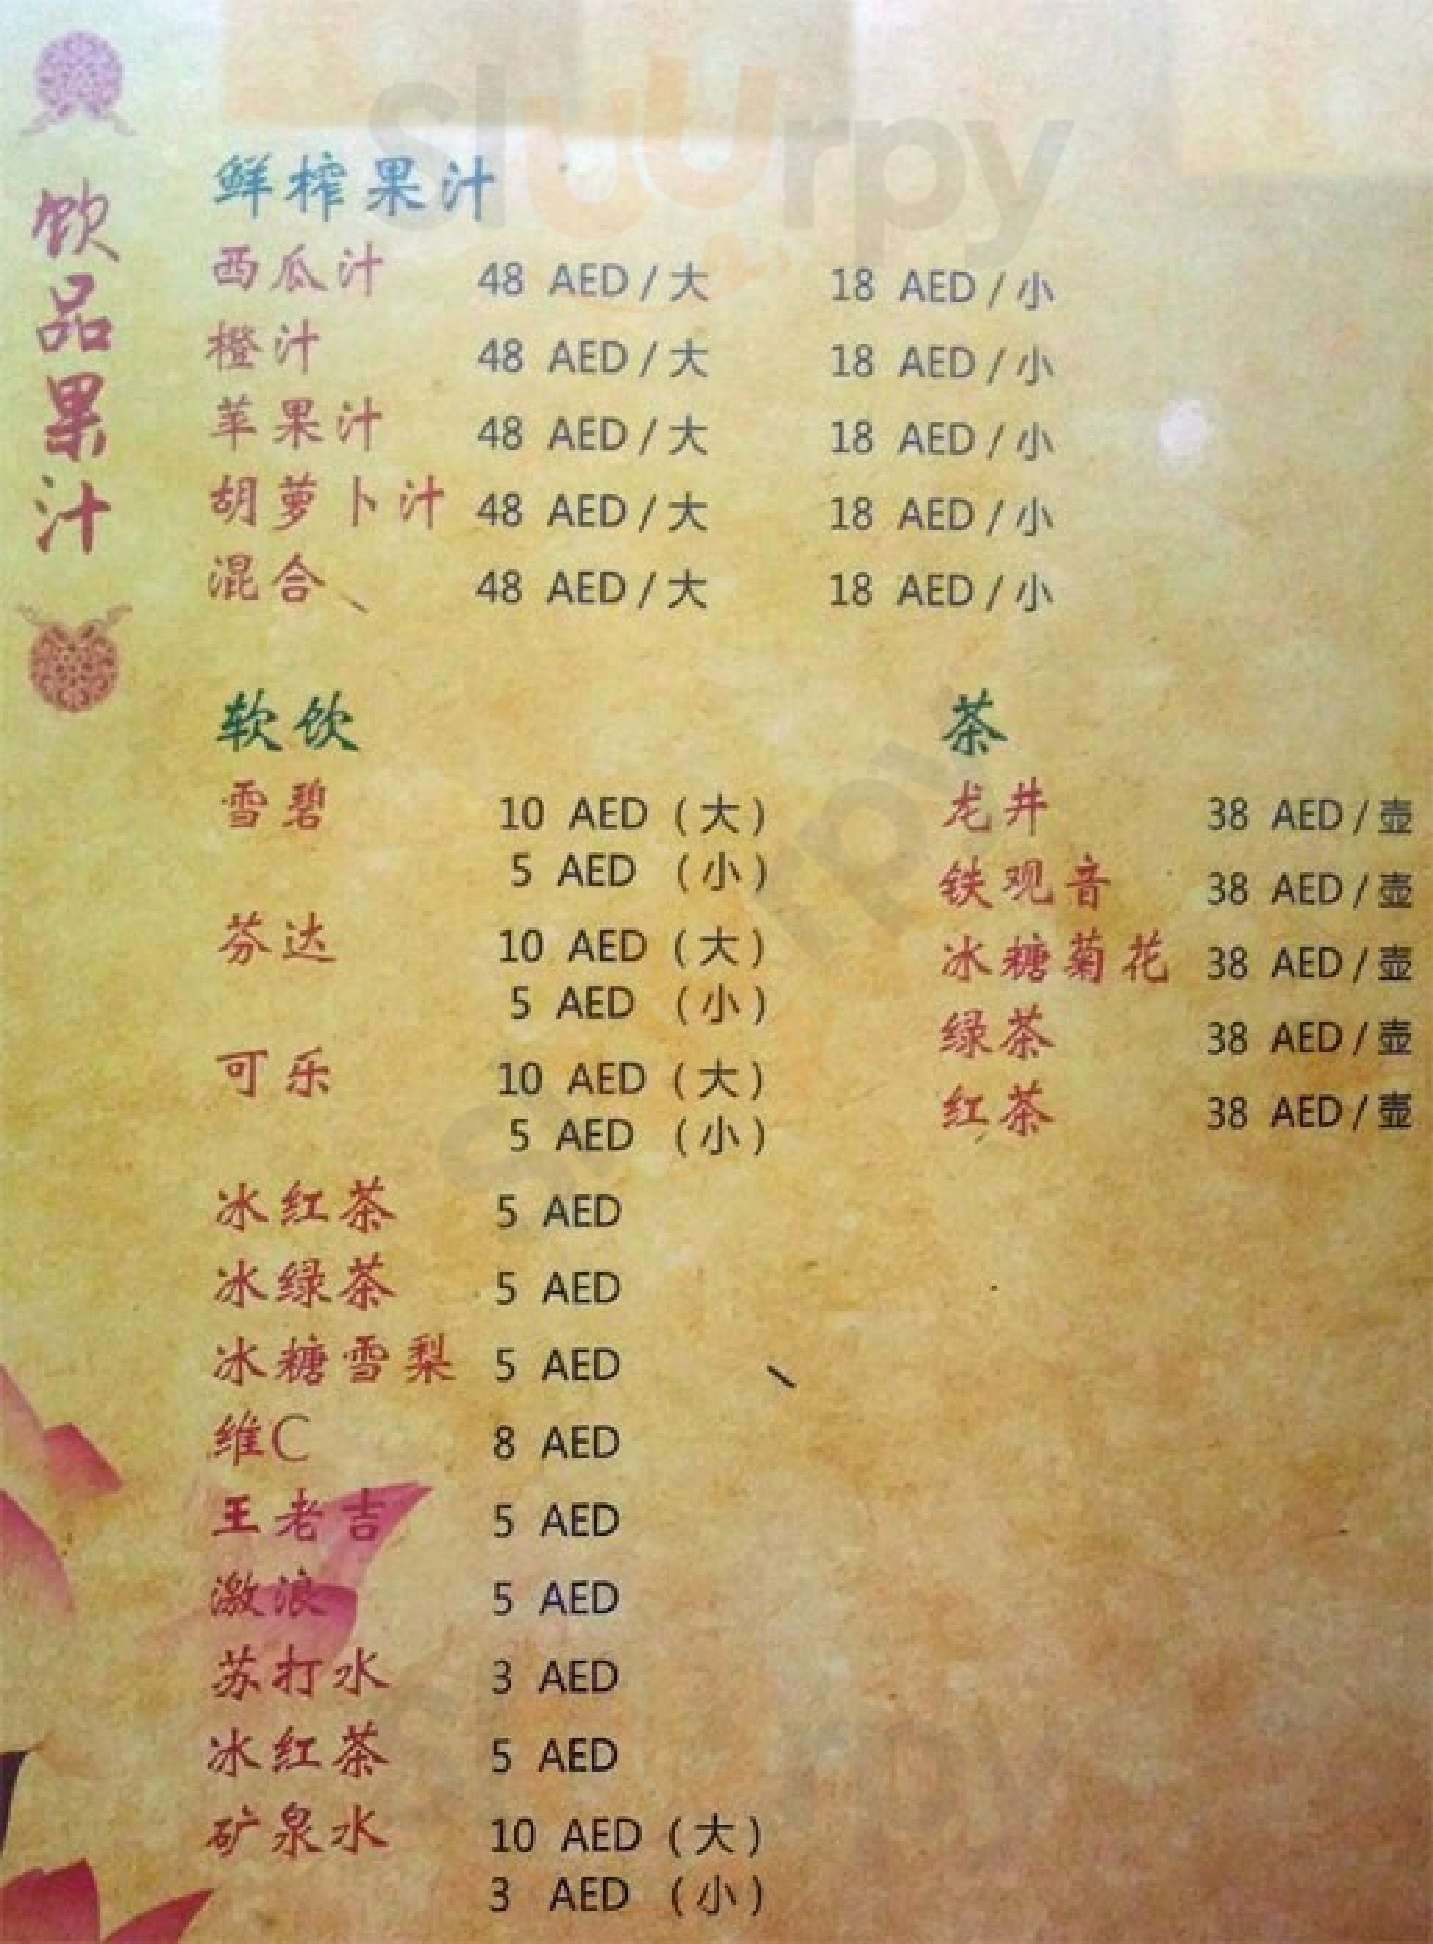 sluurpy
饮品果汁
鲜榨果汁
西瓜汁 48 AED / 大 18 AED / 小
橙汁 48 AED / 大 18 AED / 小
苹果汁 48 AED / 大 18 AED / 小
胡萝卜汁 48 AED / 大 18 AED / 小
混合 48 AED / 大 18 AED / 小
软饮
雪碧 10 AED (大)
5 AED (小)
芬达 10 AED (大)
5 AED (小)
可乐 10 AED (大)
5 AED (小)
冰红茶 5 AED
冰绿茶 5 AED
冰糖雪梨 5 AED
维C 8 AED
王老吉 5 AED
激浪 5 AED
苏打水 3 AED
冰红茶 5 AED
矿泉水 10 AED (大)
3 AED (小)
茶
龙井 38 AED / 壶
铁观音 38 AED / 壶
冰糖菊花 38 AED / 壶
绿茶 38 AED / 壶
红茶 38 AED / 壶
sluurpy
sluurpy